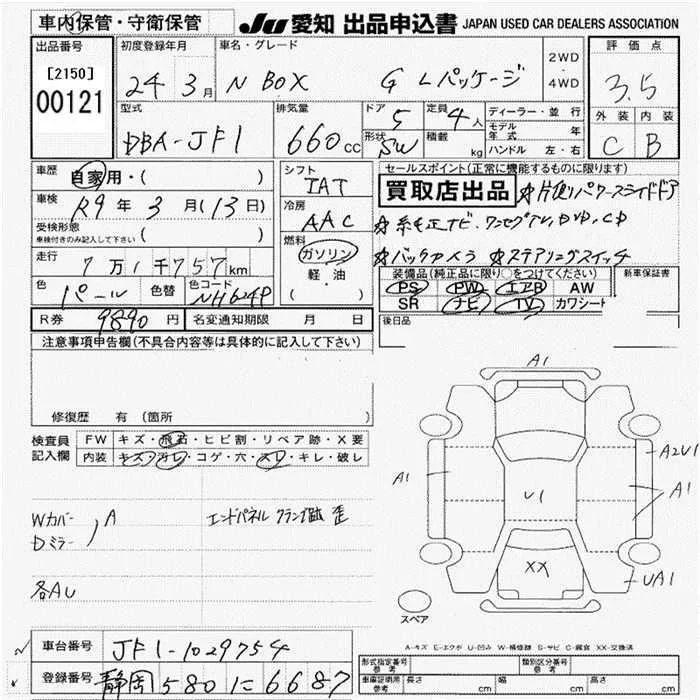 車内保管・守衛保管 JU 愛知 出品申込書 JAPAN USED CAR DEALERS ASSOCIATION
出品番号 初度登録年月 車名・グレード 2WD・4WD 評価点
[2150] 24年3月 N BOX G Lパッケージ 3.5
00121 型式 排気量 ドア 定員 ディーラー・並行 外装 内装
DBA-JF1 660cc 5 4人 モデル年式 年 C B
形状 SW 積載 kg ハンドル 左・右
車歴 自家用・( ) シフト IAT セールスポイント(正常に機能するものに限ります)
車検 R9年3月(13日) 冷房 AAC 買取店出品 ☆片側パワースライドドア
受検形態 車検付きのみ記入して下さい ( ) ☆純正ナビ.ワンセグTV,DVD,CD
走行 7万1千757km 燃料 ガソリン・軽油 ( ) ☆バックカメラ ☆ステアリングスイッチ
色 パール 色替 色コード NH624P 装備品(純正品に限り○をつけてください) 新車保証書
PS PW エアB AW
SR ナビ TV カワシート
R券 9890円 名変通知期限 月 日 後日品
注意事項申告欄(不具合内容等は具体的に記入して下さい)
修復歴 有(箇所
検査員記入欄 FW キズ・飛石・ヒビ割・リペア跡・X要
内装 キズ・汚レ・コゲ・穴・スレ・キレ・破レ
A1
A2U1
A1 U1 A1
Wカバー
Dミラー A エンドパネル クランプ跡 歪
XX
UA1
各AU
スペア
A-キズ E-エクボ U-凹み W-補修跡 S-サビ C-腐食 XX-交換済
車台番号 JF1-1029754
登録番号 静岡 580 に 6687
形式指定番号 参考 類別区分番号 参考
車庫証明用 参考 長さ cm 幅 cm 高さ cm